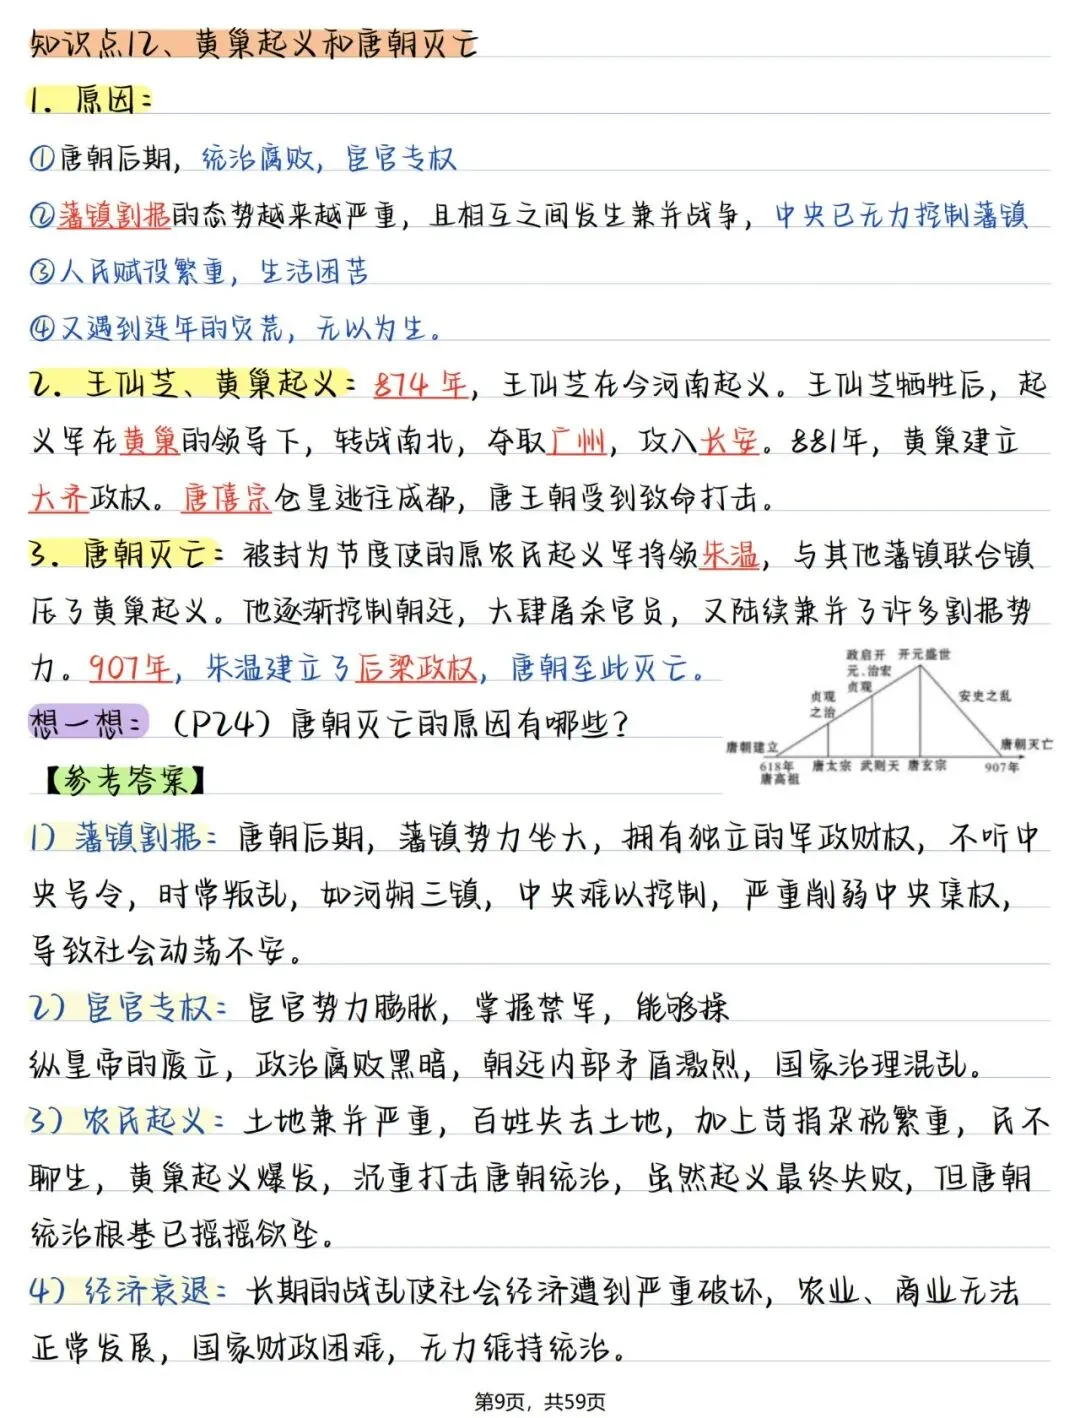 知识点12、黄巢起义和唐朝灭亡
1. 原因：
①唐朝后期，统治腐败，宦官专权
②藩镇割据的态势越来越严重，且相互之间发生兼并战争，中央已无力控制藩镇
③人民赋役繁重，生活困苦
④又遇到连年的灾荒，无以为生。
2. 王仙芝、黄巢起义：874年，王仙芝在今河南起义。王仙芝牺牲后，起
义军在黄巢的领导下，转战南北，夺取广州，攻入长安。881年，黄巢建立
大齐政权。唐僖宗仓皇逃往成都，唐王朝受到致命打击。
3. 唐朝灭亡：被封为节度使的原农民起义军将领朱温，与其他藩镇联合镇
压了黄巢起义。他逐渐控制朝廷，大肆屠杀官员，又陆续兼并了许多割据势
力。907年，朱温建立了后梁政权，唐朝至此灭亡。
政启开 开元盛世
元、治宏
贞观
贞观
之治
安史之乱
唐朝建立
唐朝灭亡
618年 唐太宗 武则天 唐玄宗 907年
唐高祖
想一想：（P24）唐朝灭亡的原因有哪些？
【参考答案】
1）藩镇割据：唐朝后期，藩镇势力坐大，拥有独立的军政财权，不听中
央号令，时常叛乱，如河朔三镇，中央难以控制，严重削弱中央集权，
导致社会动荡不安。
2）宦官专权：宦官势力膨胀，掌握禁军，能够操
纵皇帝的废立，政治腐败黑暗，朝廷内部矛盾激烈，国家治理混乱。
3）农民起义：土地兼并严重，百姓失去土地，加上苛捐杂税繁重，民不
聊生，黄巢起义爆发，沉重打击唐朝统治，虽然起义最终失败，但唐朝
统治根基已摇摇欲坠。
4）经济衰退：长期的战乱使社会经济遭到严重破坏，农业、商业无法
正常发展，国家财政困难，无力维持统治。
第9页，共59页